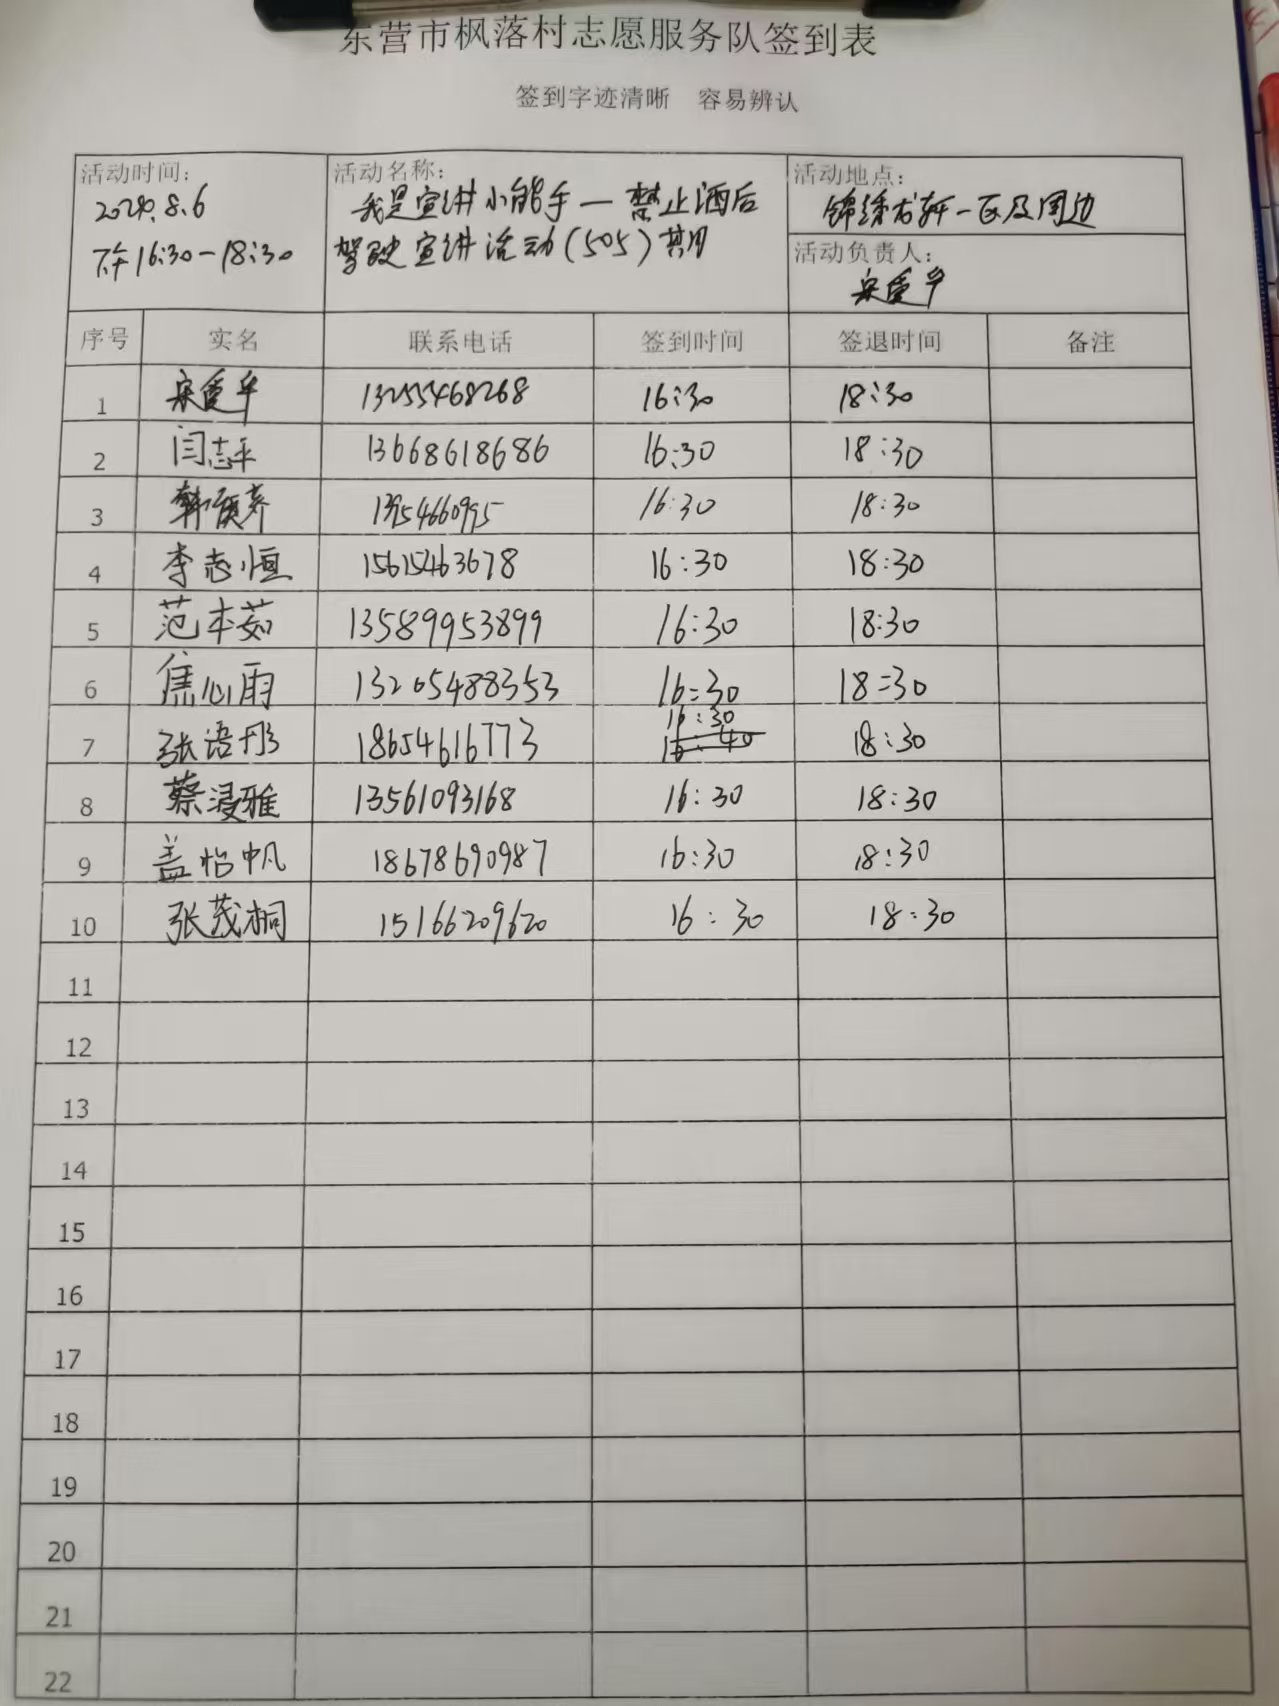 东营市枫落村志愿服务队签到表
签到字迹清晰 容易辨认
活动时间:
2024.8.6
下午16:30-18:30
活动名称:
我是宣讲小能手—禁止酒后
驾驶宣讲活动(505)
活动地点:
锦绣龙轩一区及周边
活动负责人:
宋爱华
序号 实名 联系电话 签到时间 签退时间 备注
1 宋爱华 13255468268 16:30 18:30
2 闫志平 13668618686 16:30 18:30
3 韩 16:30 18:30
4 李志恒 15615463678 16:30 18:30
5 范本茹 13589953899 16:30 18:30
6 焦心雨 13205488353 16:30 18:30
7 张语彤 18654616773 16:30 16:40 18:30
8 蔡浸雅 13561093168 16:30 18:30
9 盖怡帆 18678690987 16:30 18:30
10 张茂桐 15166209620 16:30 18:30
11
12
13
14
15
16
17
18
19
20
21
22